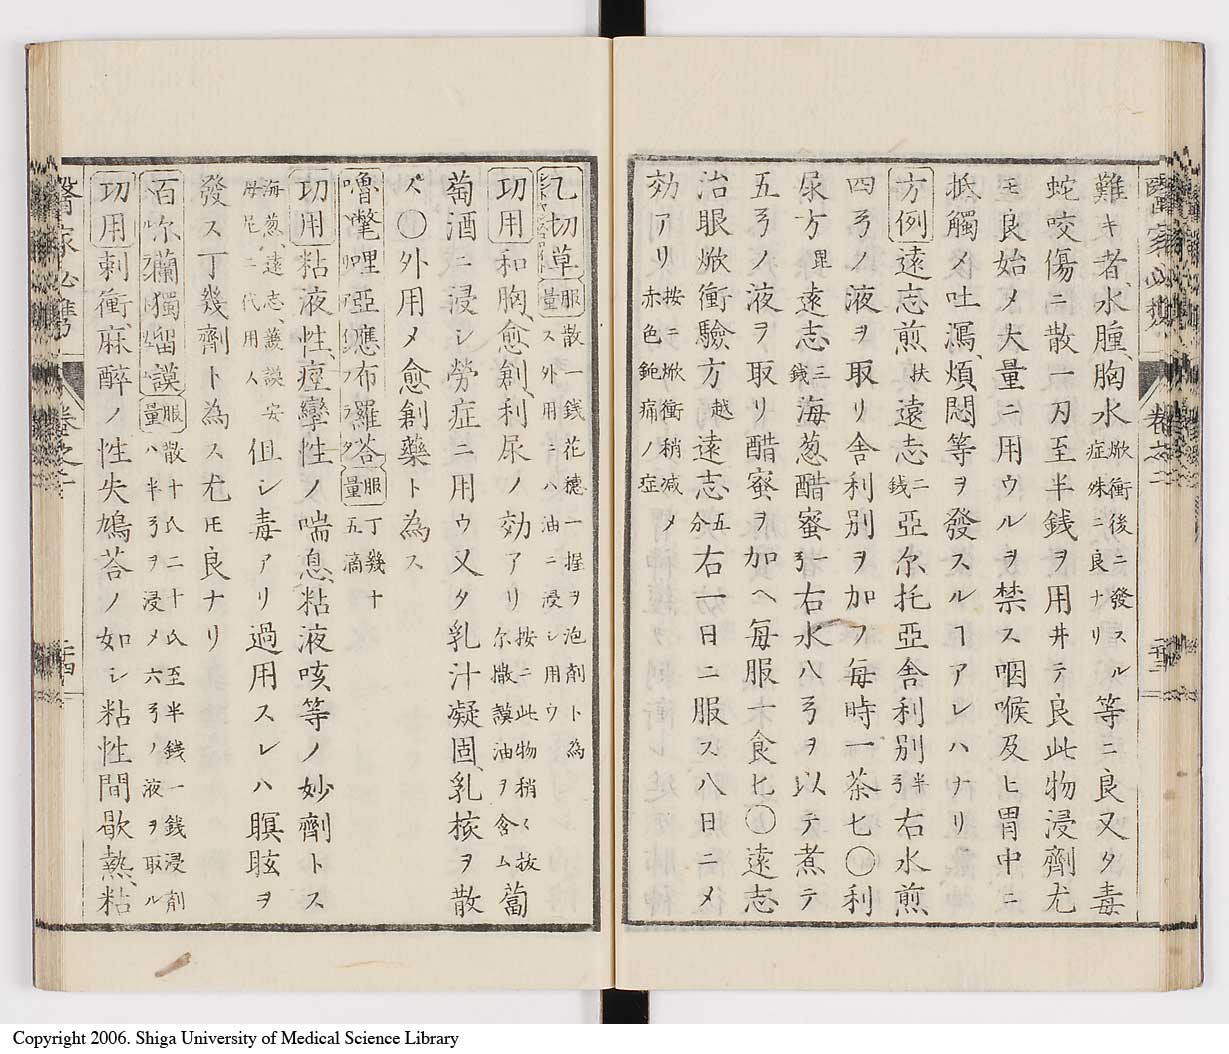 難キ者、水腫、胸水 焮衝後ニ發スル 症殊ニ良ナリ 等ニ良又タ毒
蛇咬傷ニ散一刀至半銭ヲ用井テ良此物浸劑尤
モ良始メ大量ニ用ウルヲ禁ス咽喉及ヒ胃中ニ
抵觸メ後吐瀉、煩悶等ヲ發スルヿアレハナリ
方例 遠志煎 扶 遠志 二銭 亞尓托亞舎利別 半弓 右水煎
四弓ノ液ヲ取リ舎利別ヲ加フ每時一茶匕〇利
尿方 毘 遠志 三銭 海葱醋蜜 一弓 右水八弓ヲ以テ煮テ
五弓ノ液ヲ取リ醋蜜ヲ加ヘ每服一食匕〇遠志
治眼焮衝驗方 越 遠志 五分 右一日ニ服ス八日ニメ
効アリ 按ニ焮衝稍減メ 赤色鈍痛ノ症
醫家必携 卷之二
乙切草 服量 散一銭花穗一握ヲ泡劑ト為 ス外用ニハ油ニ浸シ用ウ
功用 和胸、愈創、利尿ノ効アリ 按ニ此物稍く抜 尓撒謨油ヲ含ム 蔔
萄酒ニ浸シ勞症ニ用ウ又タ乳汁凝固、乳核ヲ散
ス〇外用メ愈創藥ト為ス
嚕氂哩亞應布羅荅 服量 丁幾十 五滴
功用 粘液性、痙攣性ノ喘息、粘液咳等ノ妙劑トス
海葱、遠志、護謨安 母尼ニ代用ス 但シ毒アリ過用スレハ瞑眩ヲ
發ス丁幾劑ト為ス尤モ良ナリ
百弥獵獨瑠謨 服量 散十氏二十氏至半銭一銭浸劑 ハ半弓ヲ浸メ六弓ノ液ヲ取ル
功用 刺衝、麻醉ノ性失鳩荅ノ如シ粘性間歇熱、粘
醫家必携 卷之二
Copyright 2006. Shiga University of Medical Science Library